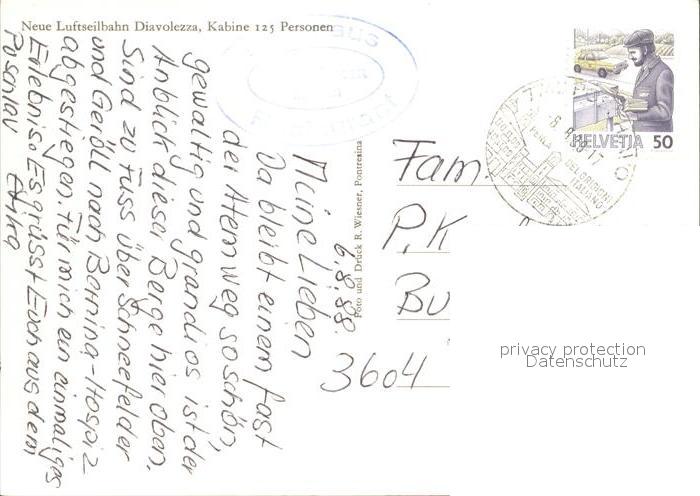 Neue Luftseilbahn Diavolezza, Kabine 125 Personen
6.8.88.
Meine Lieben
Da bleibt einem fast
der Atem weg so schön,
gewaltig und grandios ist der
Anblick dieser Berge hier oben.
Sind zu Fuss über Schneefelder
und Geröll nach Bernina-Hospiz
abgestiegen. Für mich ein einmaliges
Erlebnis. Es grüsst Euch aus dem
Puschlav
Foto und Druck R. Wiesner, Pontresina
HELVETIA 50
Fam.
P. K
Bu
3604
privacy protection
Datenschutz